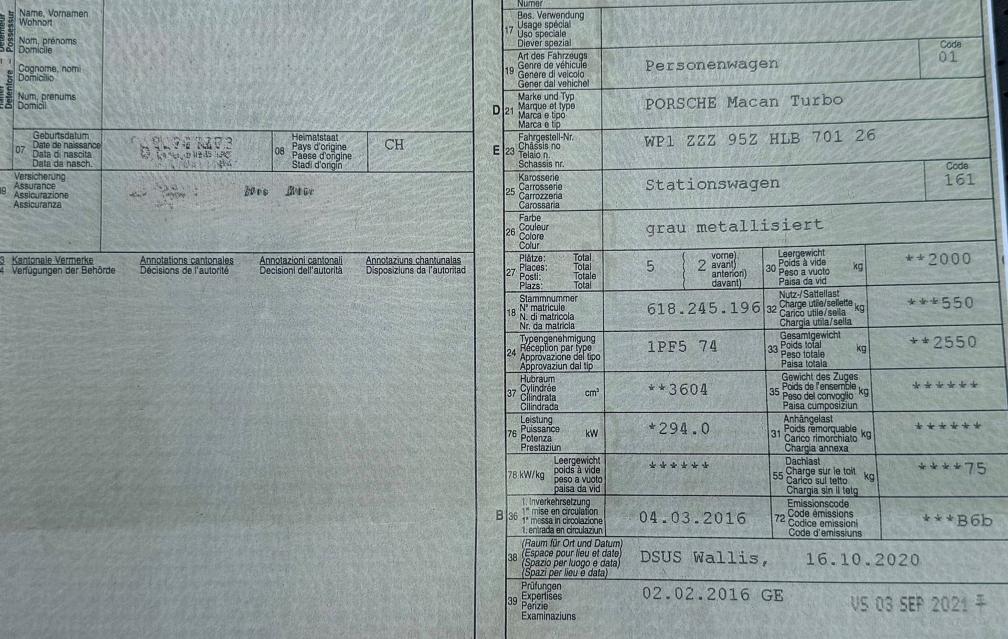 Name, Vornamen
Wohnort
Nom, prénoms
Domicile
Cognome, nomi
Domicilio
Num, prenums
Domicil
Possessur
Detentore
07
Geburtsdatum
Date de naissance
Data di nascita
Data da nasch.
08
Heimatstaat
Pays d'origine
Paese d'origine
Stadi d'origin
CH
Versicherung
Assurance
Assicurazione
Assicuranza
Kantonale Vermerke
Verfügungen der Behörde
Annotations cantonales
Décisions de l'autorité
Annotazioni cantonali
Decisioni dell'autorità
Annotaziuns chantunalas
Disposiziuns da l'autoritad
Numer
17
Bes. Verwendung
Usage spécial
Uso speciale
Diever spezial
19
Art des Fahrzeugs
Genre de véhicule
Genere di veicolo
Gener dal vehichel
Personenwagen
Code
01
D 21
Marke und Typ
Marque et type
Marca e tipo
Marca e tip
PORSCHE Macan Turbo
E 23
Fahrgestell-Nr.
Châssis no
Telaio n.
Schassis nr.
WP1 ZZZ 95Z HLB 701 26
25
Karosserie
Carrosserie
Carrozzeria
Carossaria
Stationswagen
Code
161
26
Farbe
Couleur
Colore
Colur
grau metallisiert
27
Plätze: Total
Places: Total
Posti: Totale
Plazs: Total
5
( 2
vorne)
avant)
anterion)
davant)
30
Leergewicht
Poids à vide
Peso a vuoto
Paisa da vid
kg
**2000
18
Stammnummer
N° matricule
N. di matricola
Nr. da matricla
618.245.196
32
Nutz-/Sattellast
Charge utile/sellette
Carico utile/sella
Chargia utila/sella
kg
***550
24
Typengenehmigung
Réception par type
Approvazione del tipo
Approvaziun dal tip
1PF5 74
33
Gesamtgewicht
Poids total
Peso totale
Paisa totala
kg
**2550
37
Hubraum
Cylindrée
Cilindrata
Cilindrada
cm³
**3604
35
Gewicht des Zuges
Poids de l'ensemble
Peso del convoglio
Paisa cumposiziun
kg
******
76
Leistung
Puissance
Potenza
Prestaziun
kW
*294.0
31
Anhängelast
Poids remorquable
Carico rimorchiato
Chargia annexa
kg
******
78 kW/kg
Leergewicht
poids à vide
peso a vuoto
paisa da vid
******
55
Dachlast
Charge sur le toit
Carico sul tetto
Chargia sin il tetg
kg
****75
B 36
1. Inverkehrsetzung
1re mise en circulation
1a messa in circolazione
1. entrada en circulaziun
04.03.2016
72
Emissionscode
Code émissions
Codice emissioni
Code d'emissiuns
***B6b
38
(Raum für Ort und Datum)
(Espace pour lieu et date)
(Spazio per luogo e data)
(Spazi per lieu e data)
DSUS Wallis, 16.10.2020
39
Prüfungen
Expertises
Perizie
Examinaziuns
02.02.2016 GE
VS 03 SEP 2021